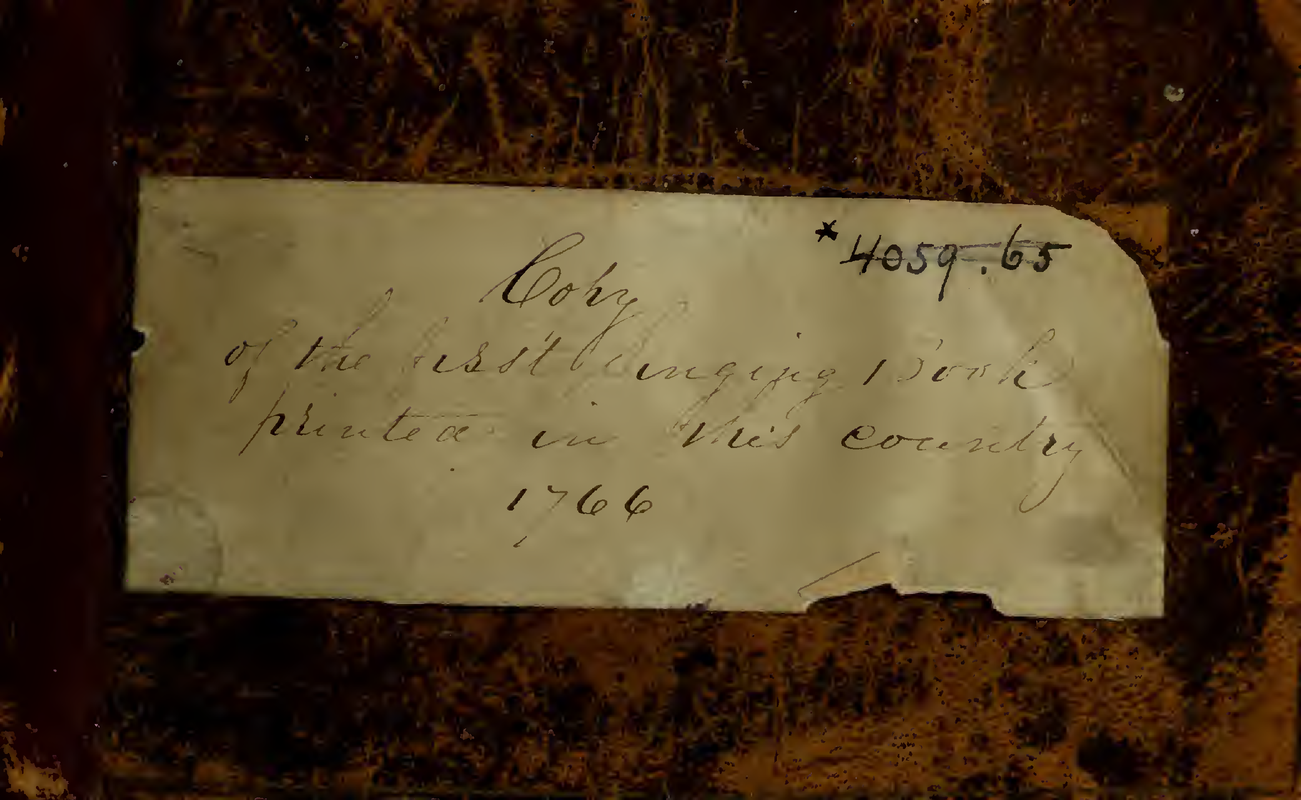 *4059.65
Copy
of the first Singing Book
printed in this country
1766